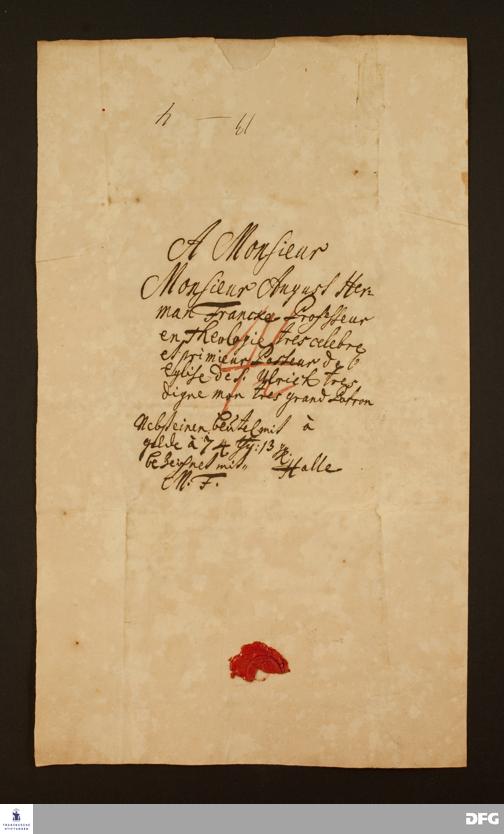 A Monsieur
Monsieur August Her-
man Francke Professeur
en Theologie tres celebre
et primieur Pasteur de l'
Eglise de S. Ulrick tres
digne mon tres grand Patron
Nebst einen beutel mit à
gelde à 74 13
bezeichnet mit Halle
M. F.
FRANCKESCHE
STIFTUNGEN
DFG